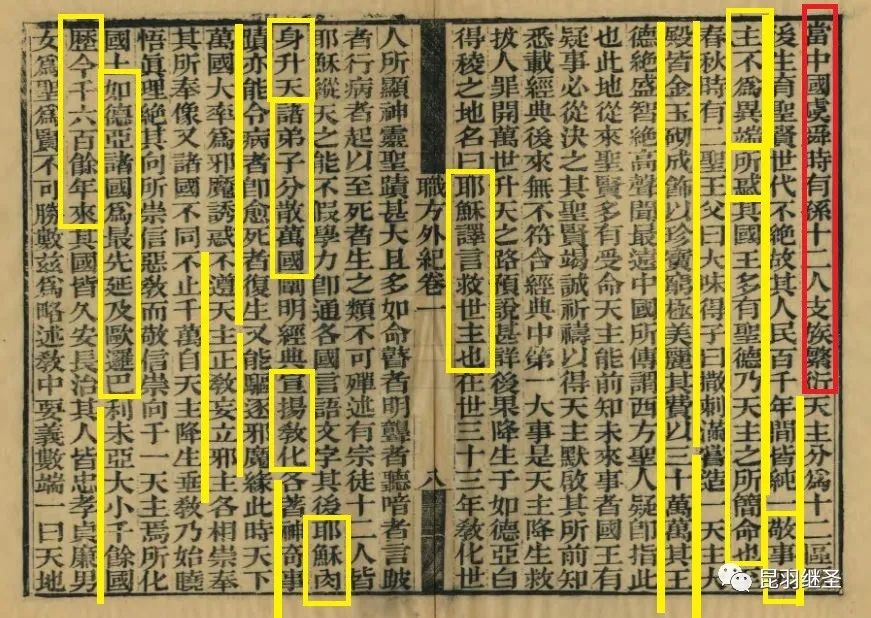 當中國虞舜時有孫十二人支族繁衍天主分為十二區
後生育聖賢世代不絕故其人民百千年間皆純一敬事
主不為異端所惑其國王多有聖德乃天主之所簡命也
春秋時有二聖王父曰大味得子曰撒剌滿嘗造一天主大
殿皆金玉砌成飾以珍寶窮極美麗其費以三十萬萬其王
德絕盛智絕高聲聞最遠中國所傳謂西方聖人疑即指此
也此地從來聖賢多有受命天主能前知未來事者國王有
疑事必從決之其聖賢竭誠祈禱以得天主默啟其所前知
悉載經典後來無不符合經典中第一大事是天主降生救
拔人罪開萬世升天之路預說甚詳後果降生于如德亞白
得稜之地名曰耶穌譯言救世主也在世三十三年教化世
職方外紀卷一
八
人所顯神靈聖蹟甚大且多如命瞽者明聾者聽喑者言跛
者行病者起以至死者生之類不可殫述有宗徒十二人皆
耶穌縱天之能不假學力即通各國言語文字其後耶穌肉
身升天諸弟子分散萬國闡明經典宣揚教化各著神奇事
蹟亦能令病者即愈死者復生又能驅逐邪魔緣此時天下
萬國大率為邪魔誘惑不遵天主正教妄立邪主各相崇奉
其所奉像又諸國不同不止千萬自天主降生垂教乃始曉
悟真理絕其向所崇信惡教而敬信崇向于一天主焉所化
國土如德亞諸國為最先延及歐邏巴利未亞大小千餘國
歷今千六百餘年來其國皆久安長治其人皆忠孝貞廉男
女為聖為賢不可勝數茲為略述教中要義數端一曰天地
昆羽继圣